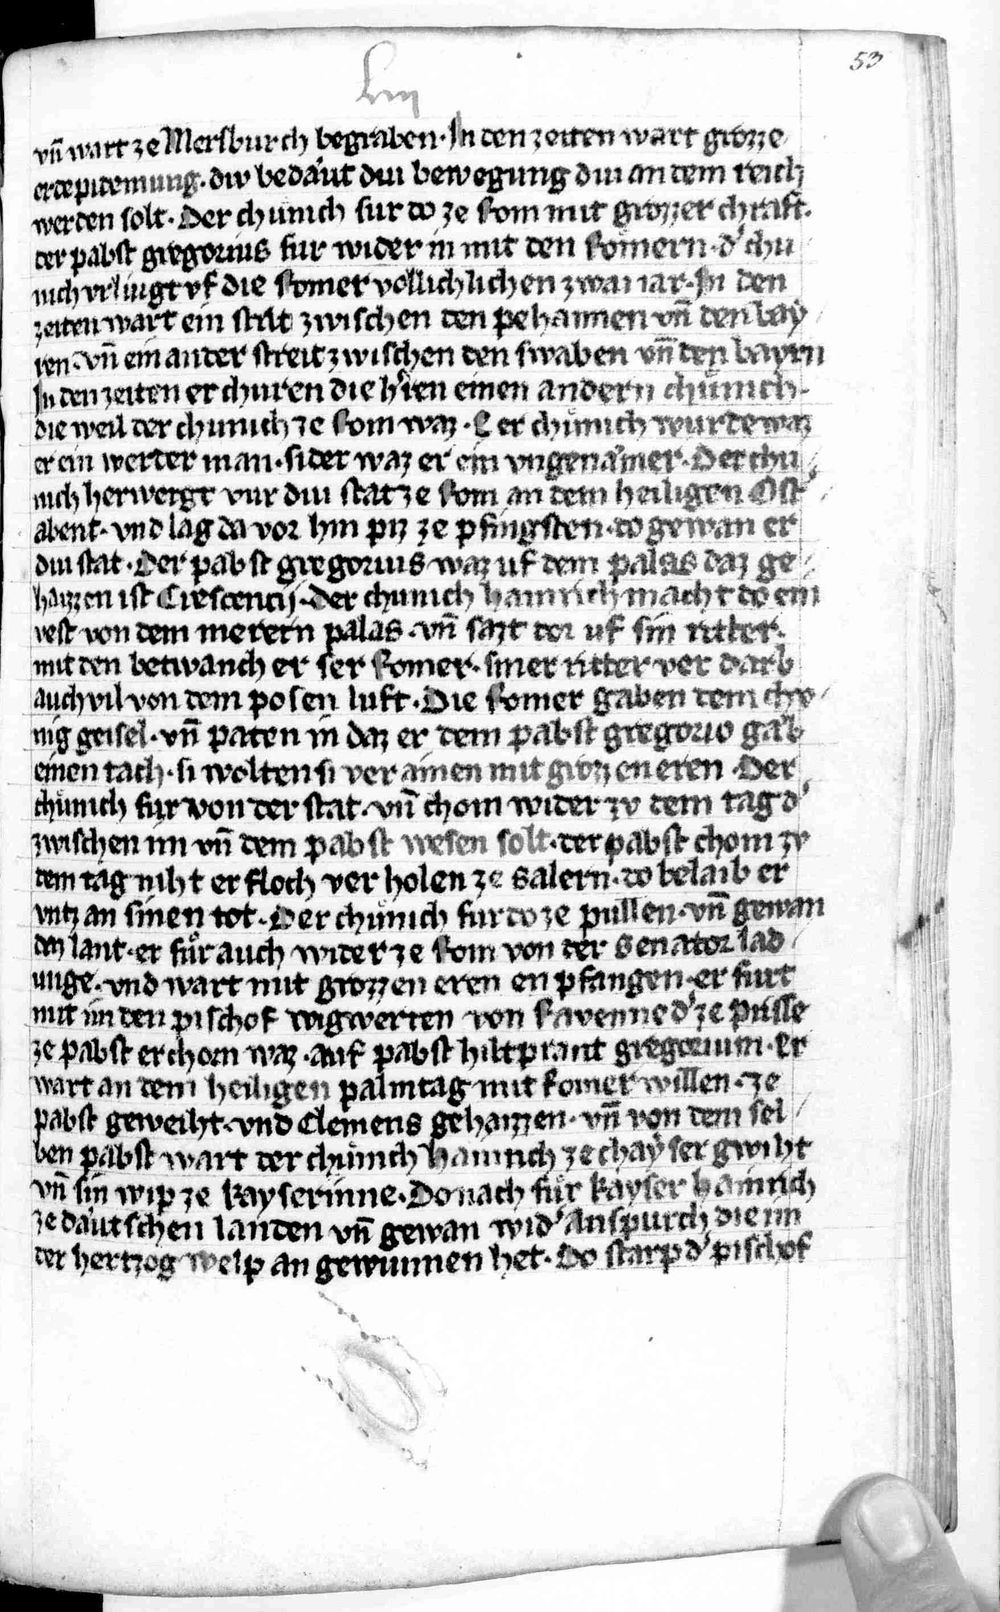 53
liij
vn̄ wart ze Mersburch begraben · In den zeiten wart grozze
ertepidemung · diu bedäut diu bewegung diu an dem reich
werden solt · Der chunich fur do ze Rom mit grozzer chraft ·
der pabst gregorius fur wider in mit den Romern · d' chu
nich vrliugt vf die Romer vollichlichen zwai iar · In den
zeiten wart ein strit zwischen den pehaimen vn̄ den bay
ren · vn̄ ein ander streit zwischen den swaben vn̄ den bayrn
In den zeiten er churen die h'ren einen andern chůnich ·
die weil der chunich ze Rom waz · E er chůnich wurde waz
er ein werder man · sider waz er ein vngenämer · Der chu
nich herwergt vur diu stat ze Rom an dem heiligen Ost
abent · vnd lag da vor hin piz ze pfingsten · do gewan er
diu stat · Der pabst gregorius waz uf dem palas daz ge
haizzen ist Crescencij · Der chunich hainrich macht do ein
vest von dem merern palas · vn̄ sazt dor uf sin ritter ·
mit den betwanch er ser Romer · siner ritter ver darb
auch vil von dem posen luft · Die Romer gaben dem chv
nig geisel · vn̄ paten in daz er dem pabst gregorio gab
einen tach · si wolten si ver ainen mit grozzen eren · Der
chůnich fur von der stat · vn̄ chom wider zv dem tag d'
zwischen im vn̄ dem pabst wesen solt · der pabst chom zv
dem tag niht er floch ver holen ze Salern · do belaib er
vntz an sinen tot · Der chůnich fur do ze pullen · vn̄ gewan
den lant · er fůr auch wider ze Rom von der Senator lad
unge · vnd wart mit grozzen eren en pfangen · er furt
mit im den pischof wigwerten von Ravenne d' ze Prisse
ze pabst erchorn waz · auf pabst hiltprant gregorium · Er
wart an dem heiligen palmtag mit Romer willen · ze
pabst geweiht · vnd Clemens gehaizzen · vn̄ von dem sel
ben pabst wart der chůnich hainrich ze chayser gwiht
vn̄ sin wip ze kayserinne · Donach fůr kayser hainrich
ze däutschen landen vn̄ gewan wid' Auspurch die im
der hertzog welp an gewunnen het · Do starp d' pischof